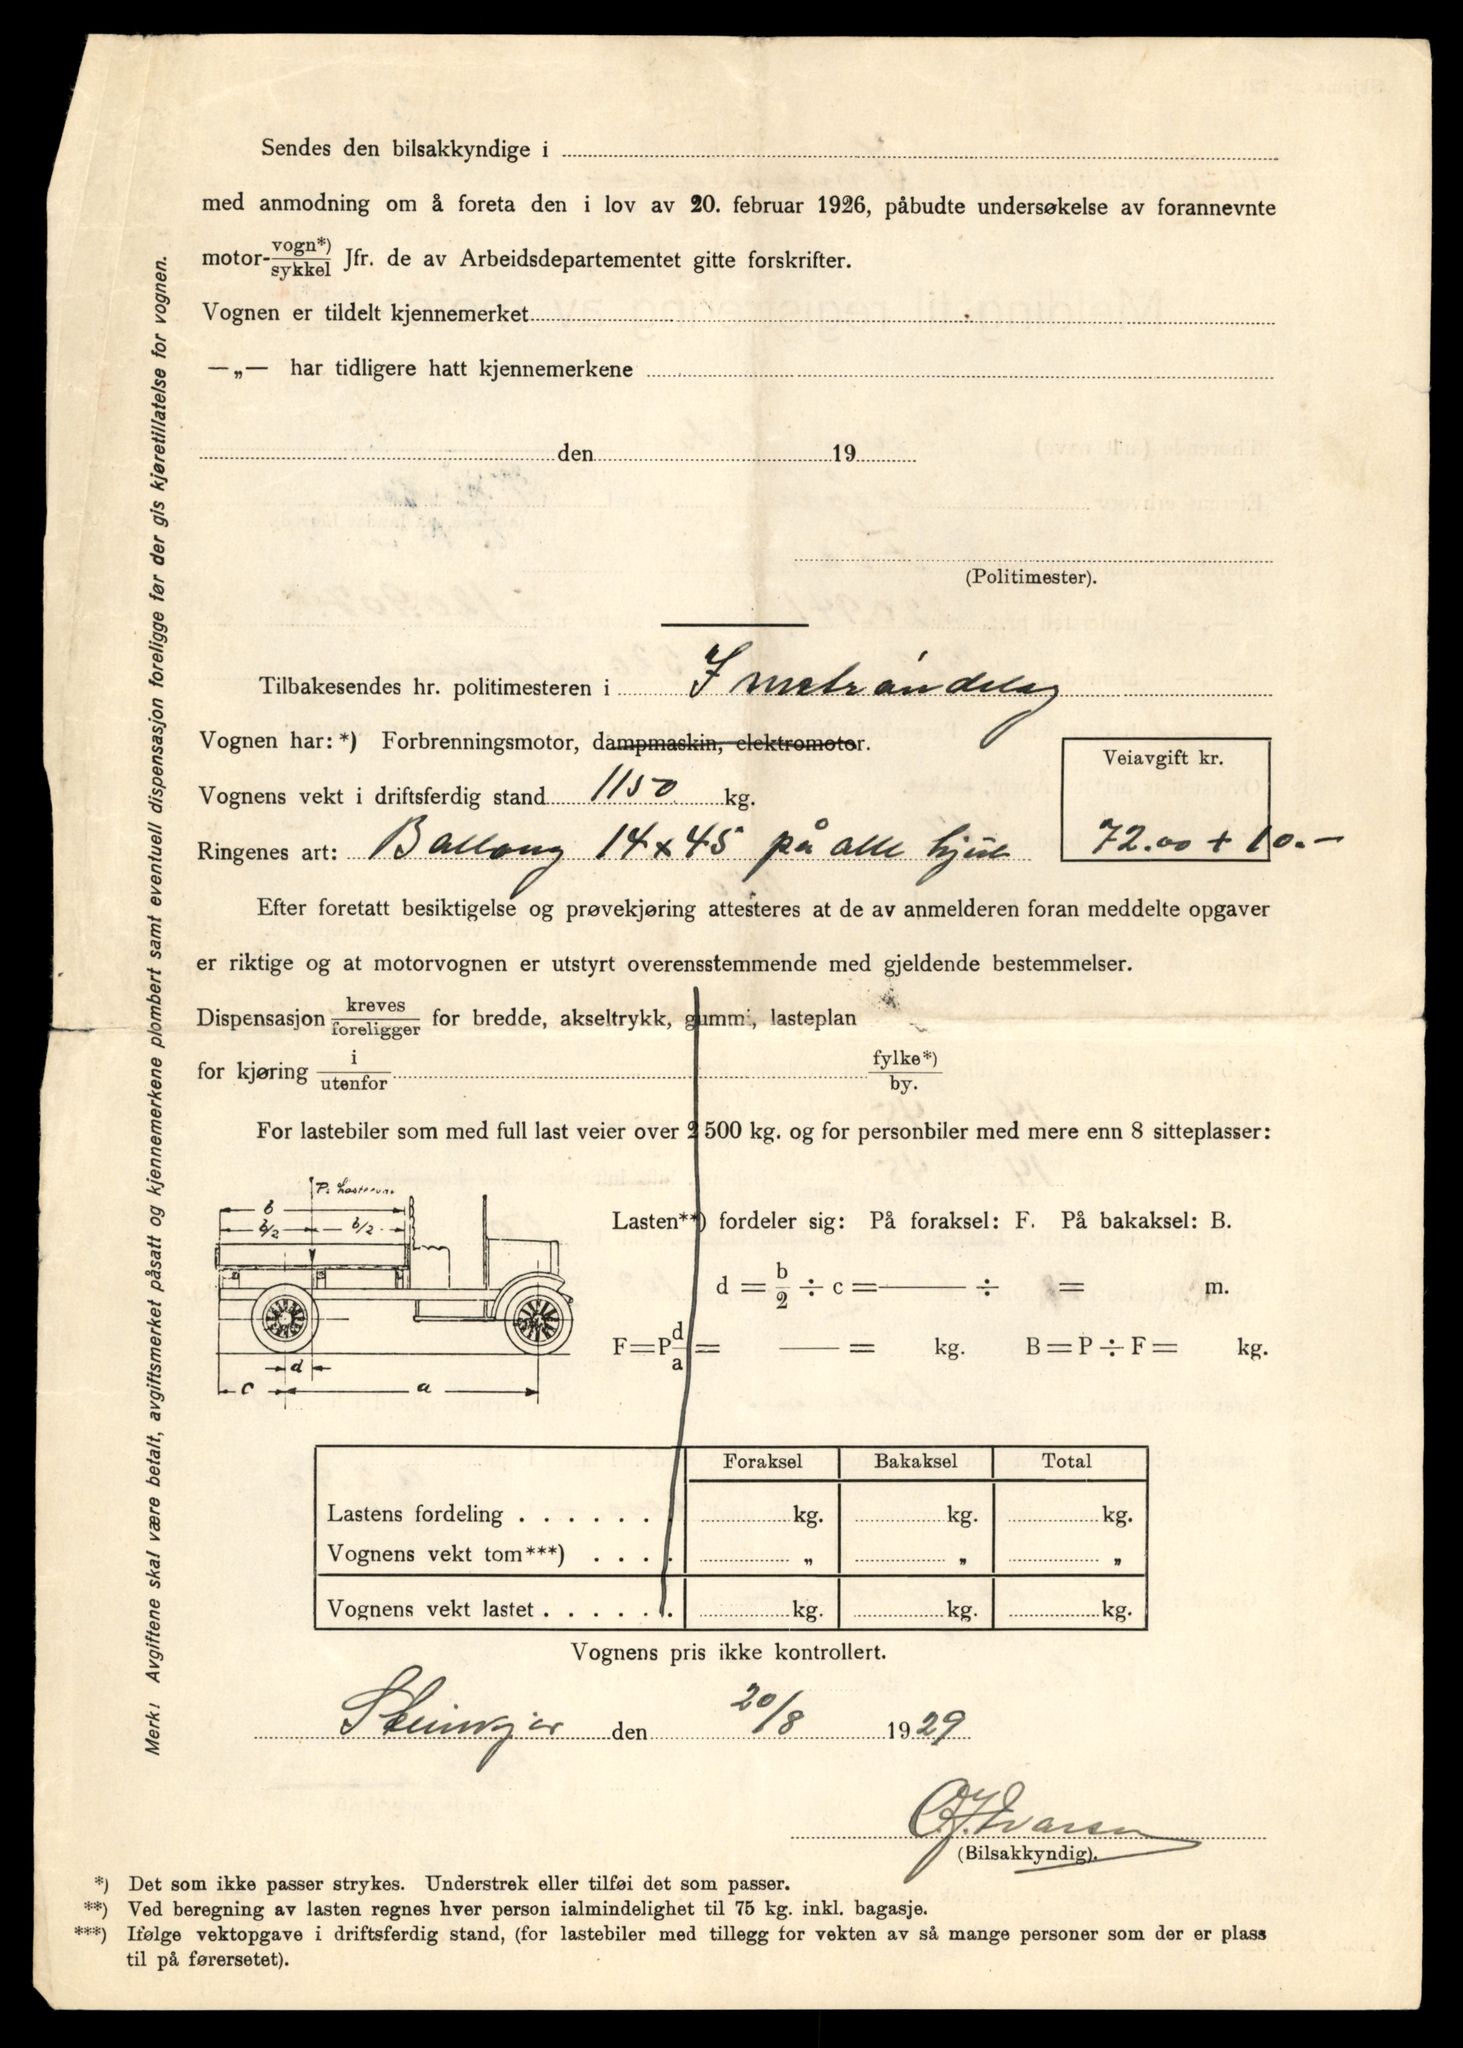 Sendes den bilsakkyndige i
med anmodning om å foreta den i lov av 20. februar 1926, påbudte undersøkelse av forannevnte
motor-vogn*)/sykkel Jfr. de av Arbeidsdepartementet gitte forskrifter.
Vognen er tildelt kjennemerket
—„— har tidligere hatt kjennemerkene
den 19
(Politimester).
Tilbakesendes hr. politimesteren i Inntrøndelag
Vognen har: *) Forbrenningsmotor, dampmaskin, elektromotor.
Veiavgift kr.
Vognens vekt i driftsferdig stand 1150 kg.
Ringenes art: Ballong 14 x 45 på alle hjul 72.00 + 10.-
Efter foretatt besiktigelse og prøvekjøring attesteres at de av anmelderen foran meddelte opgaver
er riktige og at motorvognen er utstyrt overensstemmende med gjeldende bestemmelser.
Dispensasjon kreves/foreligger for bredde, akseltrykk, gummi, lasteplan
for kjøring i/utenfor fylke*)/by.
For lastebiler som med full last veier over 2 500 kg. og for personbiler med mere enn 8 sitteplasser:
P: Lastevne
b
b/2 b/2
d
c a
Lasten**) fordeler sig: På foraksel: F. På bakaksel: B.
d = b/2 ÷ c = — ÷ = m.
F = P d/a = — = kg. B = P ÷ F = kg.
Foraksel Bakaksel Total
Lastens fordeling . . . . . . . kg. kg. kg.
Vognens vekt tom***) . . . . „ „ „
Vognens vekt lastet . . . . . . . kg. kg. kg.
Vognens pris ikke kontrollert.
Steinkjer den 20/8 1929
(Bilsakkyndig).
*) Det som ikke passer strykes. Understrek eller tilføi det som passer.
**) Ved beregning av lasten regnes hver person ialmindelighet til 75 kg. inkl. bagasje.
***) Ifølge vektopgave i driftsferdig stand, (for lastebiler med tillegg for vekten av så mange personer som der er plass
til på førersetet).
Merk! Avgiftene skal være betalt, avgiftsmerket påsatt og kjennemerkene plombert samt eventuell dispensasjon foreligge før der gis kjøretillatelse for vognen.